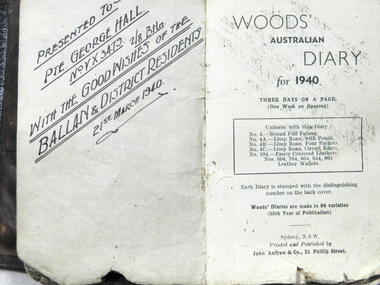 PRESENTED TO —
PTE. GEORGE HALL
No VX 3473. 2/8 Bttn.
WITH THE GOOD WISHES OF THE
BALLAN & DISTRICT RESIDENTS
21ST MARCH 1940.
WOODS'
AUSTRALIAN
DIARY
for 1940
THREE DAYS ON A PAGE,
(One Week on Opening)
Uniform with this Diary
No. 4.—Round Full Fabren.
No. 4A.—Limp Roan, with Pencil.
No. 4B.—Limp Roan, Four Pockets.
No. 4C.—Limp Roan, Circuit Edges.
No. 104.—Fancy Coloured Leathers.
Nos. 604, 704, 804, 844, 904
Leather Wallets.
Each Diary is stamped with the distinguishing
number on the back cover.
Woods' Diaries are made in 84 varieties
(55th Year of Publication)
Sydney, N.S.W.
Printed and Published by
John Andrew & Co., 21 Phillip Street.